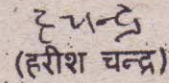 ह चन्द्र
(हरीश चन्द्र)